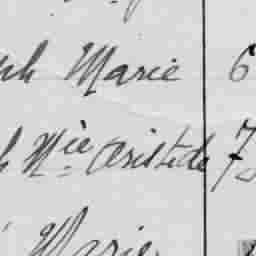 ph Marie 6
h Nie Aristide 7
Marie